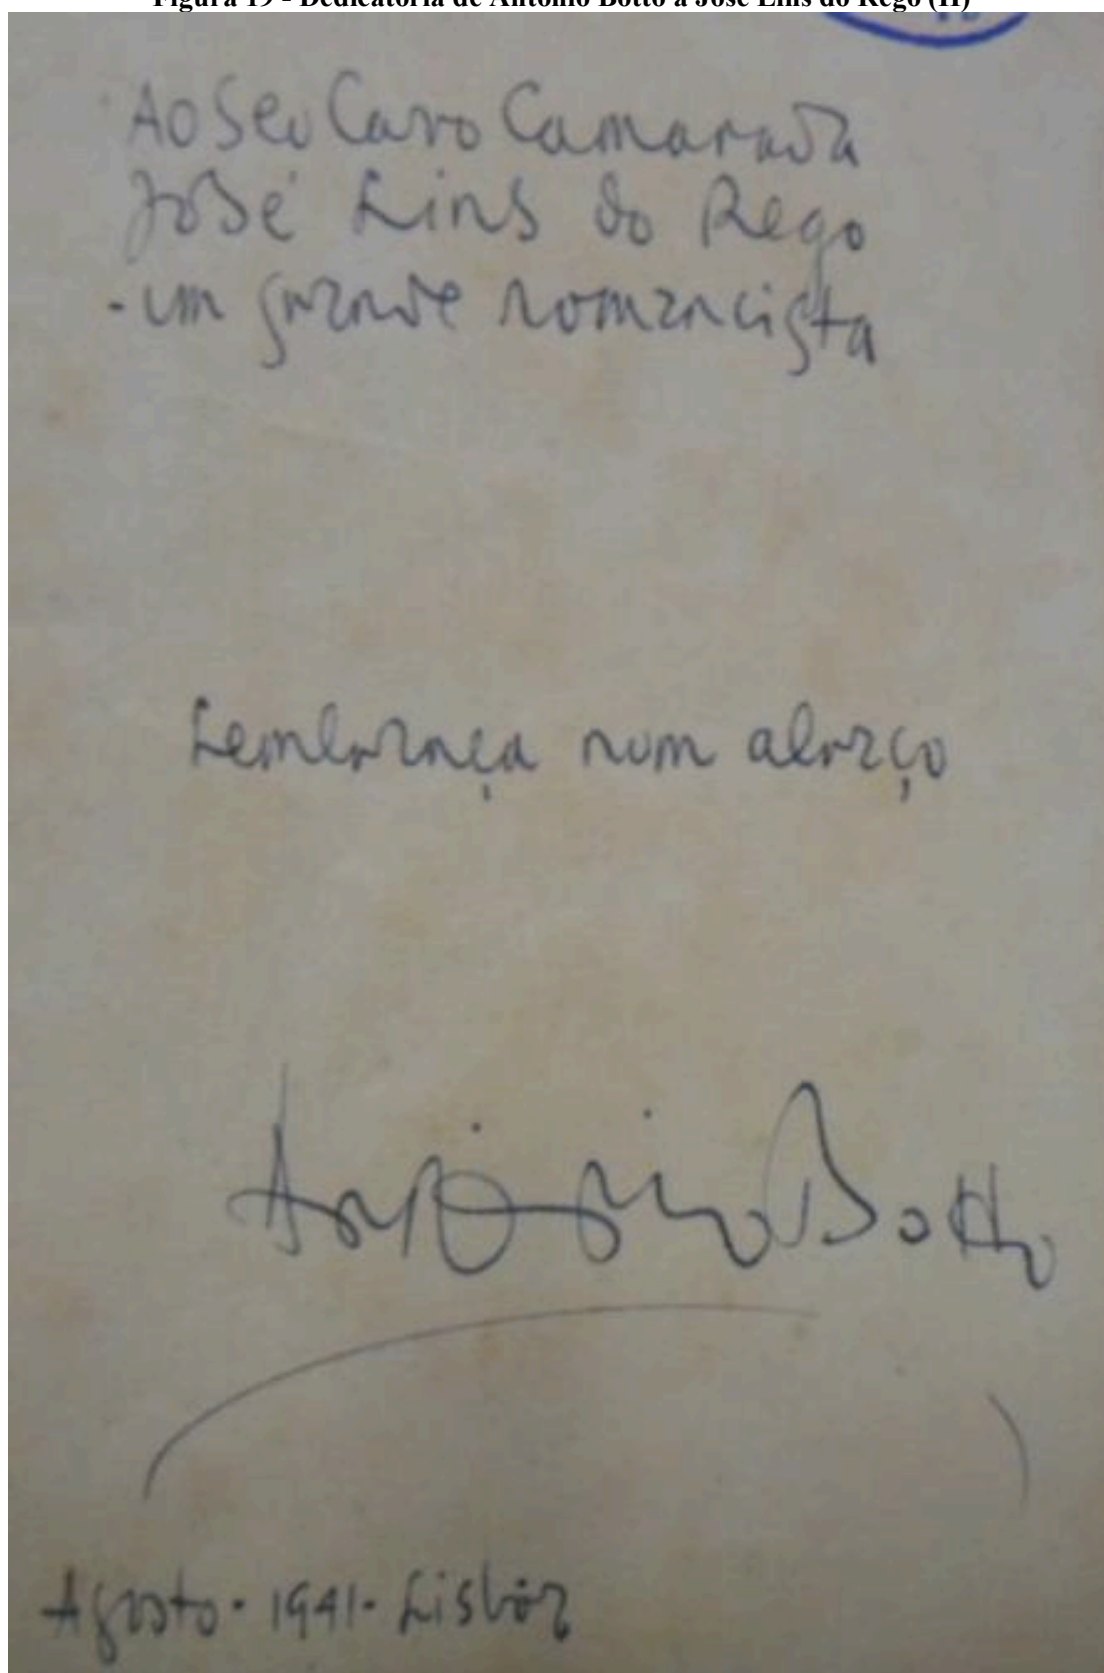 Figura 19 - Dedicatória de António Botto a José Lins do Rego (II)
Ao Seu Caro Camarada
José Lins do Rego
- um grande romancista
Lembrança num abraço
António Botto
Agosto - 1941 - Lisbôa